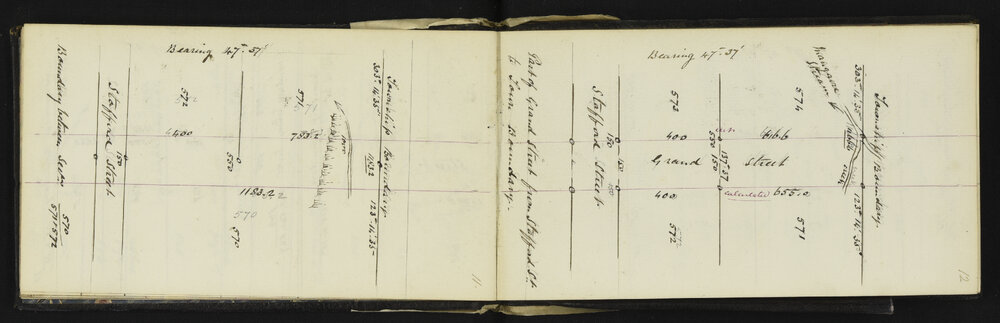 Bearing 47° 57'
Boundary between Secs
570
571/572
Stafford Street
150
572
400
550
571
783.2
1183.2
570
570
Township Boundary
303° 14' 35"
123° 14' 35"
11
Part of Grand Street from Stafford St.
to Town Boundary.
Bearing 47° 57'
Stafford Street
150
150
573
400
Grand Street
400
572
550
150
137° 57'
574
666
calculated 655.0
571
Stream
Township Boundary.
303° 14' 35"
123° 14' 35"
12